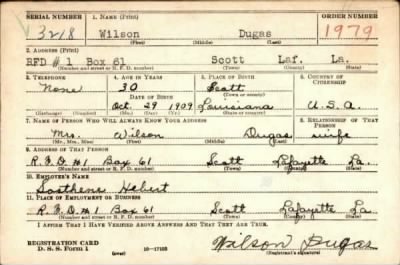 SERIAL NUMBER 1. NAME (Print) ORDER NUMBER
13218 Wilson Dugas 1979
(First) (Middle) (Last)
2. ADDRESS (Print)
RFD # 1 Box 61 Scott Laf. La.
(Number and street or R. F. D. number) (Town) (County) (State)
3. TELEPHONE 4. AGE IN YEARS 5. PLACE OF BIRTH 6. COUNTRY OF CITIZENSHIP
None 30 Scott
DATE OF BIRTH (Town or county)
Oct. 29 1909 Louisiana U.S.A.
(Exchange) (Number) (Mo.) (Day) (Yr.) (State or country)
7. NAME OF PERSON WHO WILL ALWAYS KNOW YOUR ADDRESS 8. RELATIONSHIP OF THAT PERSON
Mrs. Wilson Dugas wife
(Mr., Mrs., Miss) (First) (Middle) (Last)
9. ADDRESS OF THAT PERSON
R.F.D. #1 Box 61 Scott Lafayette La.
(Number and street or R. F. D. number) (Town) (County) (State)
10. EMPLOYER'S NAME
Sosthene Hebert
11. PLACE OF EMPLOYMENT OR BUSINESS
R.F.D. #1 Box 61 Scott Lafayette La
(Number and street or R. F. D. number) (Town) (County) (State)
I AFFIRM THAT I HAVE VERIFIED ABOVE ANSWERS AND THAT THEY ARE TRUE.
REGISTRATION CARD
D. S. S. Form 1 (over) 16—17105 Wilson Dugas
(Registrant's signature)